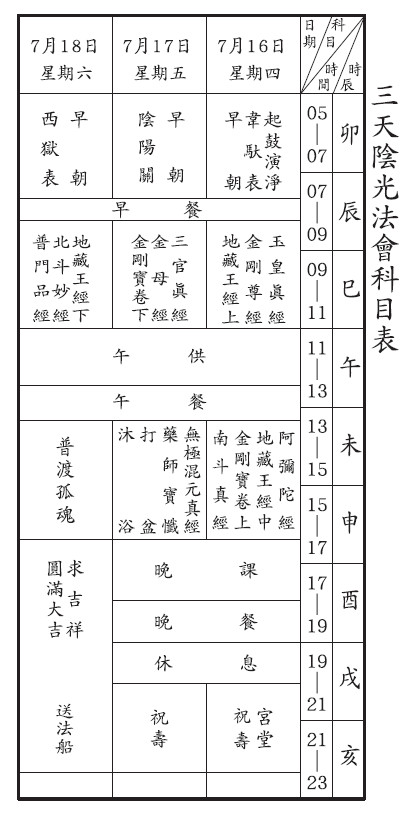 三天陰光法會科目表
科目
日期
時辰
時間
7月16日
星期四
7月17日
星期五
7月18日
星期六
卯
05｜07
起鼓演淨
韋馱表
早朝
早朝
陰陽關
早朝
西獄表
辰
07｜09
早餐
巳
09｜11
玉皇眞經
金剛尊經
地藏王經上
三官眞經
金母經
金剛寶卷下
地藏王經下
北斗妙經
普門品經
午
11｜13
午供
午餐
未
13｜15
申
15｜17
阿彌陀經
地藏王經中
金剛寶卷上
南斗真經
無極混元真經
藥師寶懺
打盆
沐浴
普渡孤魂
酉
17｜19
晚課
晚餐
求吉祥
圓滿大吉
送法船
戌
19｜21
休息
亥
21｜23
宮堂
祝壽
祝壽